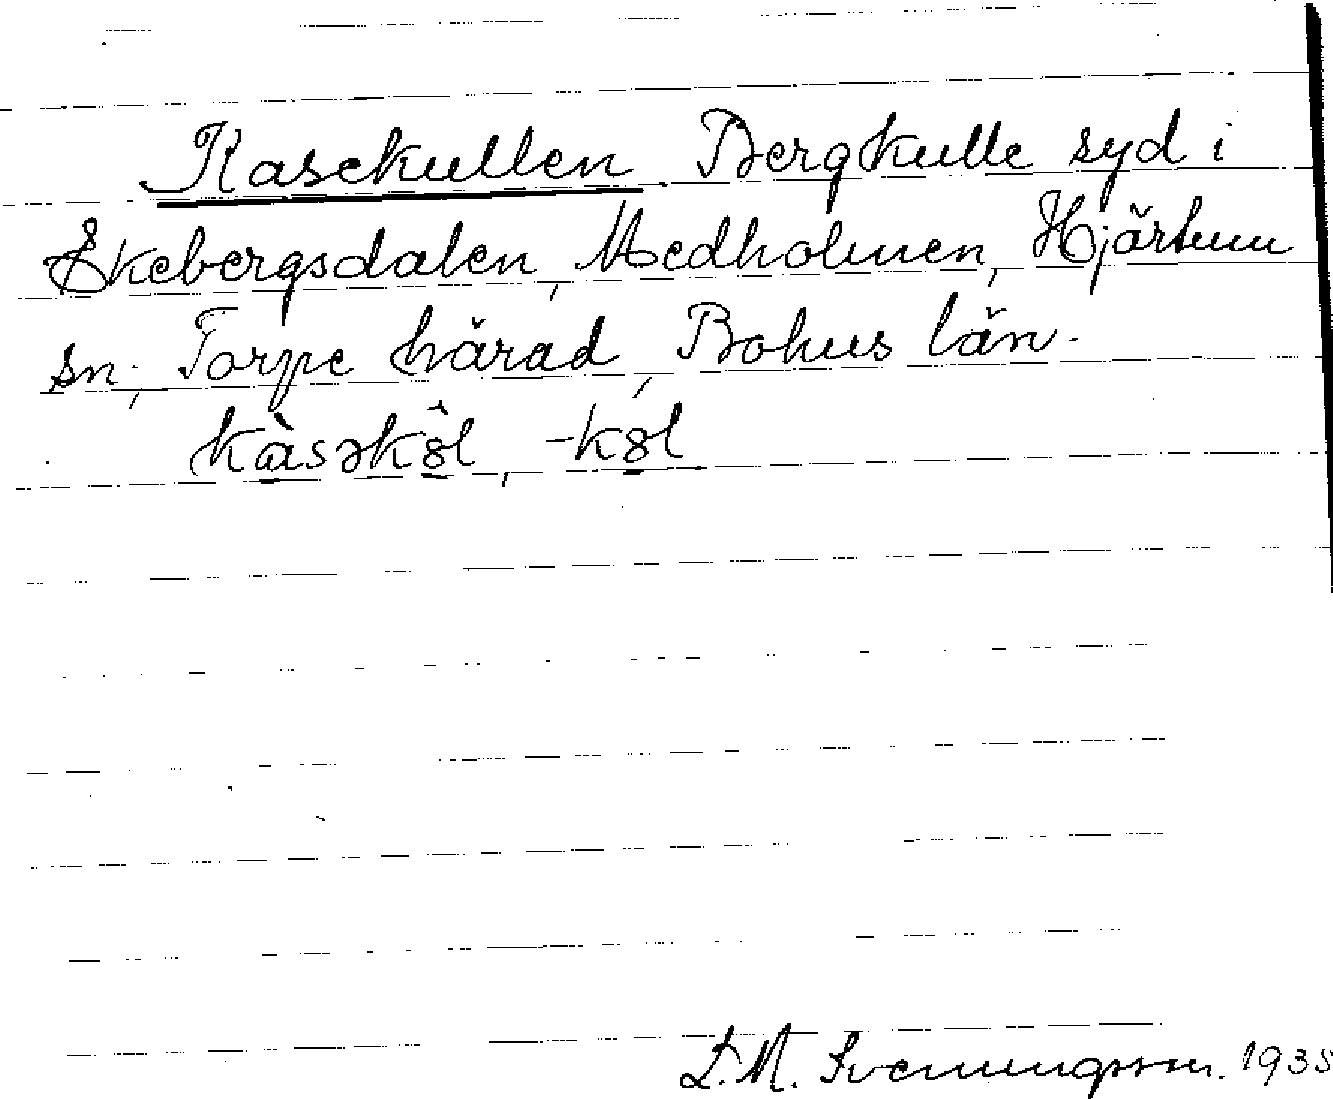 Kasekullen. Bergkulle syd i
Ekebergsdalen, Medholmen, Hjärtum
sn., Torpe härad, Bohus län.
kàsəkŏ̂l, -kŏl
L. M. Svenungsson. 1935